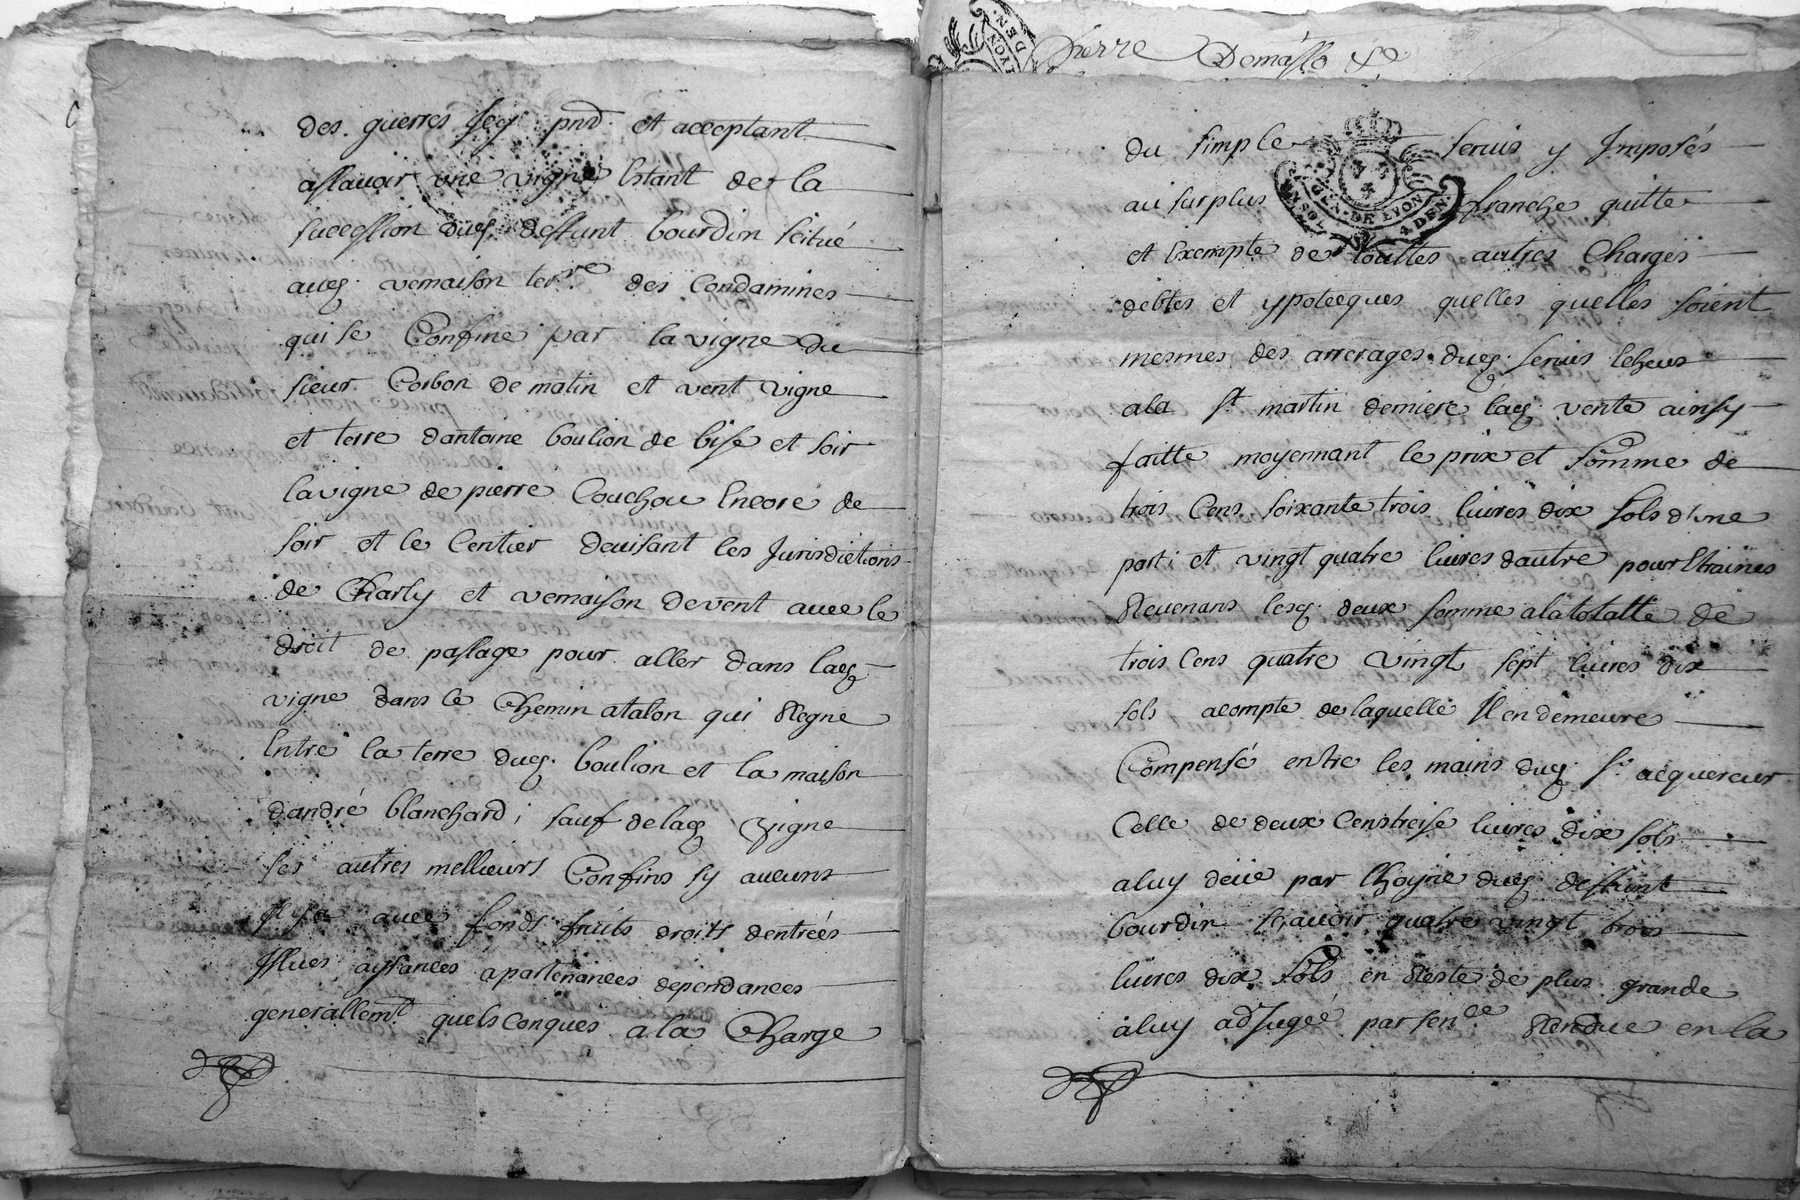 des guerres Icy pnt et acceptant
assauoir une vigne Estant de la
succession dud. deffunt bourdin scitué
aud. vernaison terre des Condamines
qui se Confine par la vigne du
sieur Corbon de matin et vent vigne
et terre dantoine boulion de bise et soir
la vigne de pierre Couchou Encore de
soir et le Centier deuisant les Jurisdictions
de Charly et vernaison de vent auec le
droit de passage pour aller dans lad.
vigne dans le Chemin atalon qui Regne
Entre la terre dud. boulion et la maison
dandré blanchard; sauf de lad. vigne
ses autres mellieurs Confins sy aucuns
Il y a auec fonds fruits droits dentrées
Issues aysances apartenances dependances
generallemt quelsconques a la Charge
Pierre
du simple seruis y Imposés
au surplus franche quitte
et Exempte de touttes autres Charges
debtes et ypotecques quelles quelles soient
mesmes des arrerages dud. seruis Echeus
ala St martin derniere Lad. vente ainsy
faitte moyennant le prix et somme de
trois Cens soixante trois liures dix sols d'une
part; et vingt quatre liures dautre pour Etraines
Reuenans lesd. deux somme ala totalle de
trois Cens quatre vingt sept liures dix
sols acompte de laquelle Il en demeure
Compensé entre les mains dud. Sr. acquereur
Celle de deux Cens treise liures dix sols
aluy deüe par lhoyrie dud. deffunt
bourdin scauoir quatre vingt trois
liures dix sols en Reste de plus grande
aluy adjugée par sence Rendue en la
GEN. DE LYON
4 DEN.